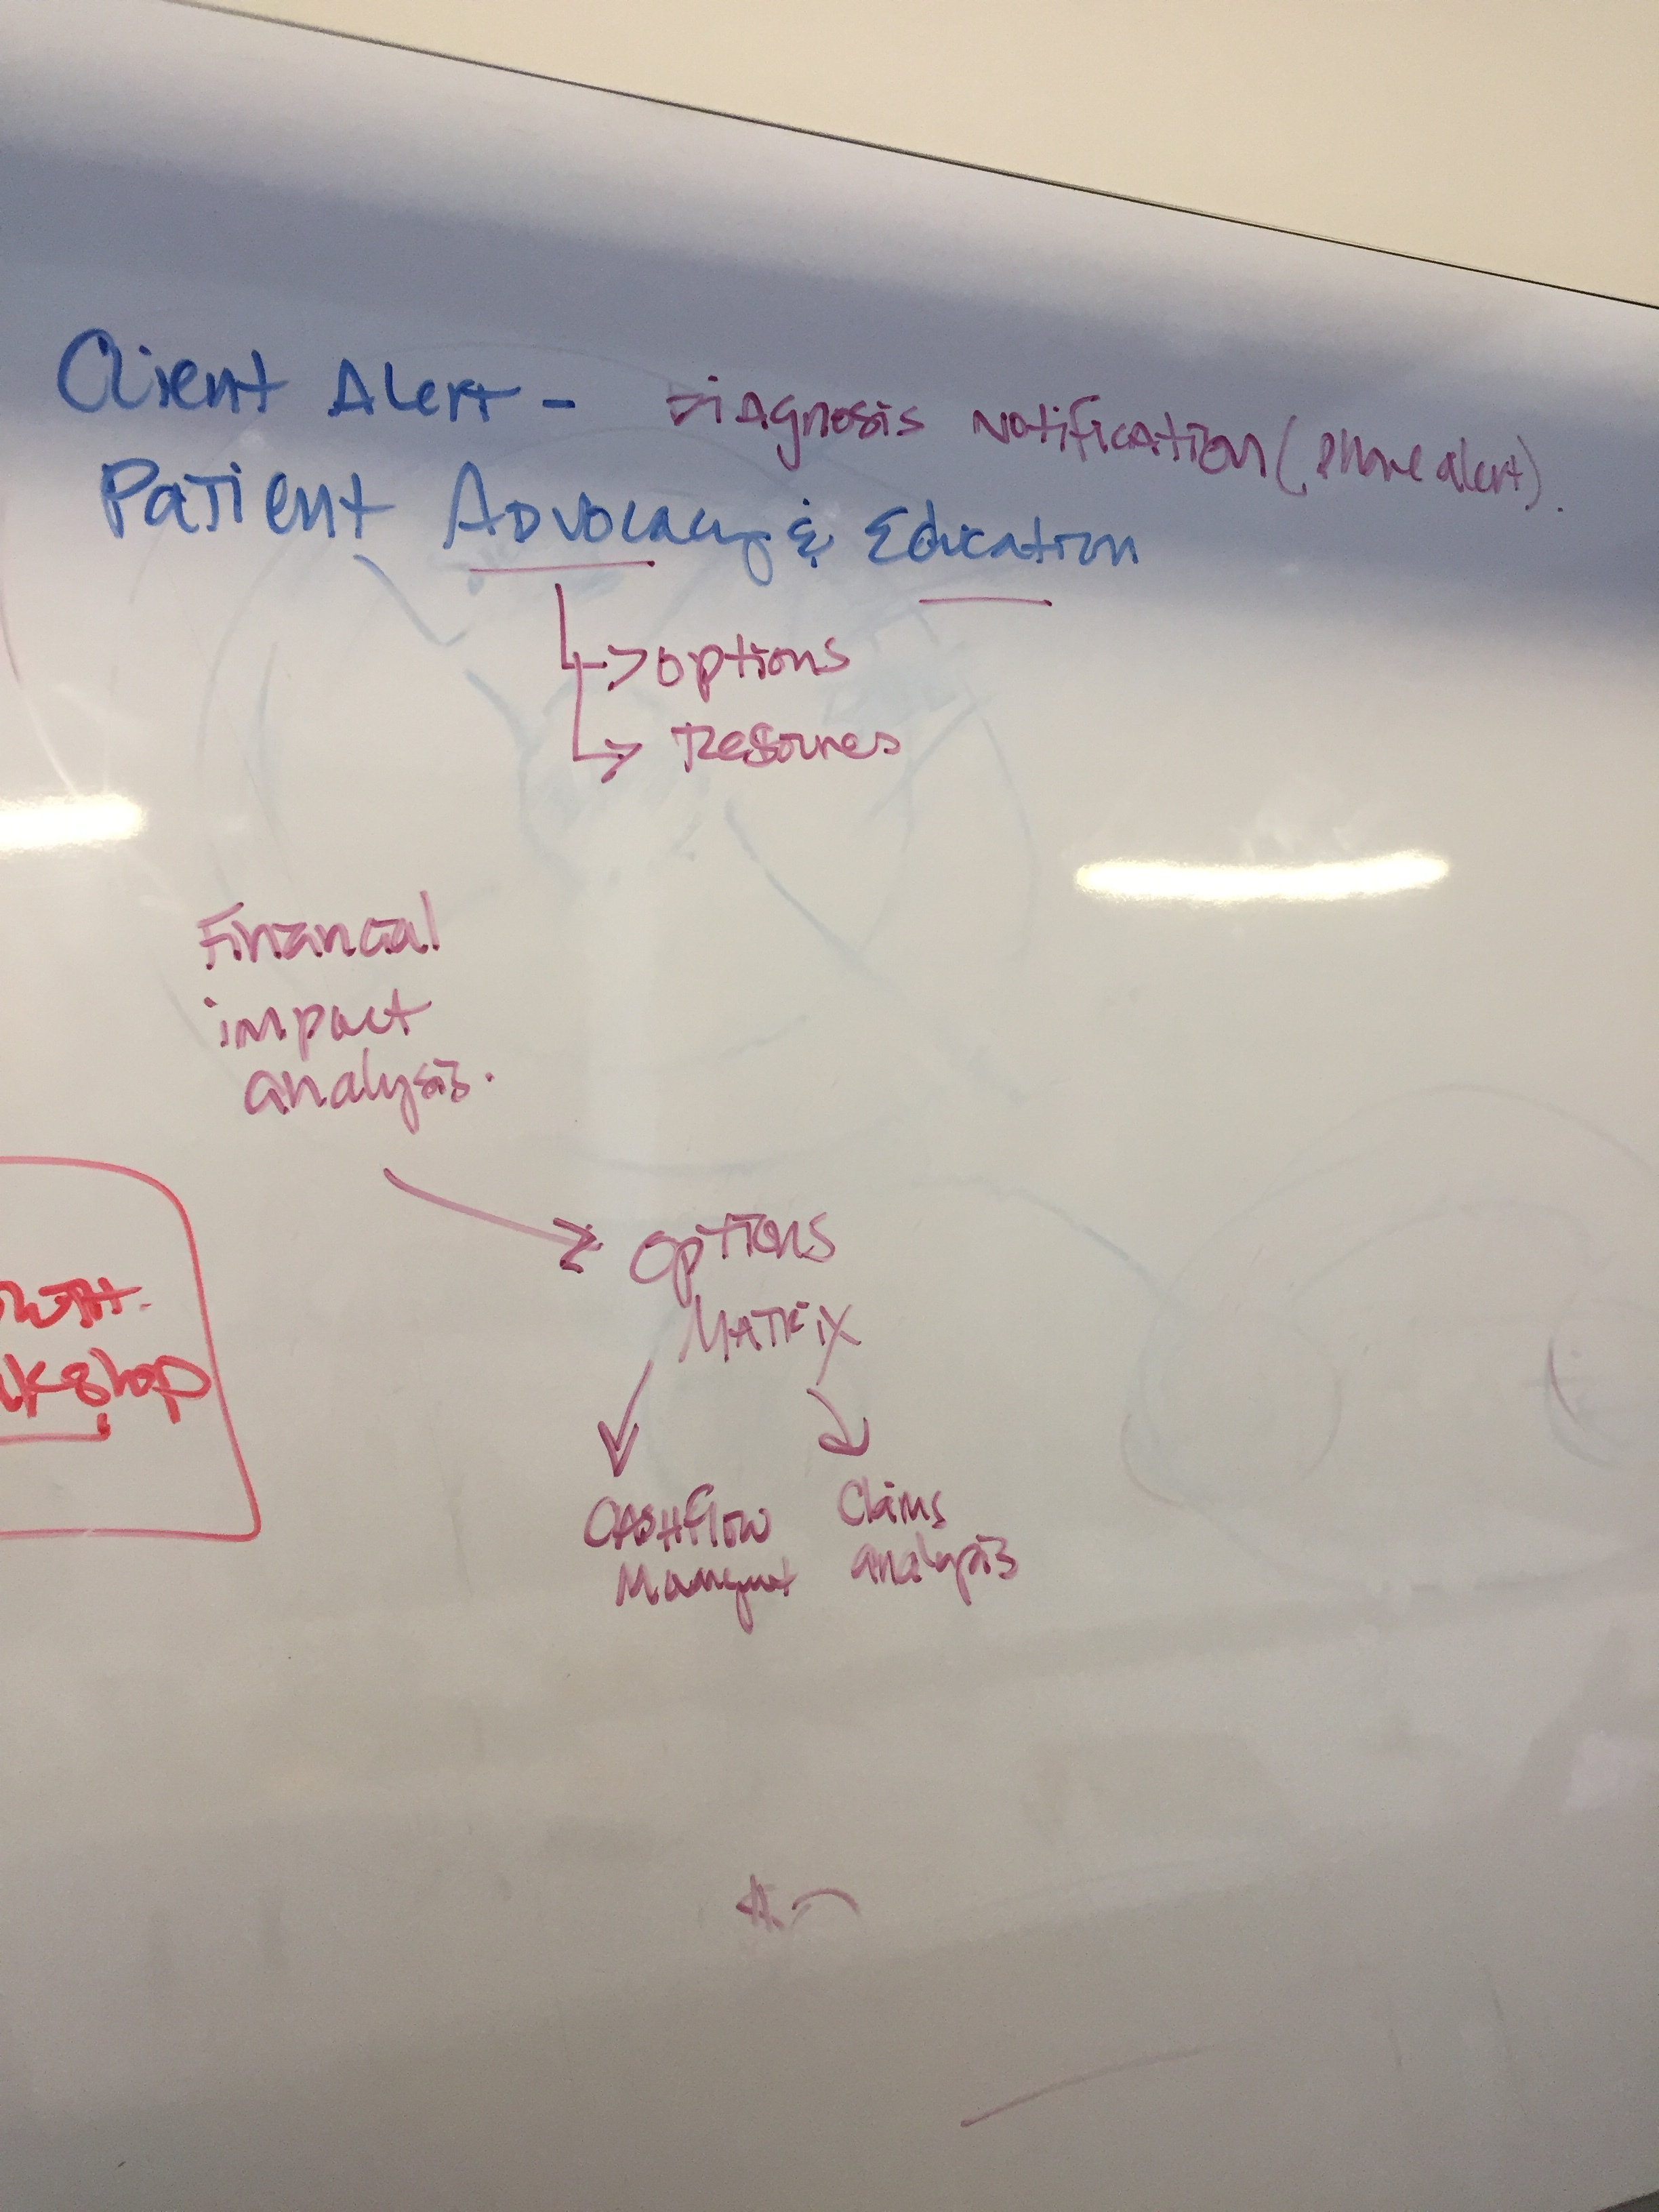 Client Alert - Diagnosis Notification (phone alert).
Patient Advocacy & Education
options
Resources
Financial
impact
analysis.
Options
Matrix
Cashflow
Claims
analysis